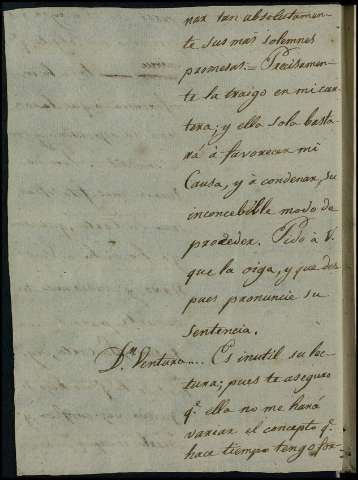 nar tan absolutamen-
te sus mas solemnes
promesas.= Precisamen-
te la traigo en mi car-
tera; y ella sola basta-
rá á favorecer mi
Causa, y á condenar, su
inconcebible modo de
proceder. Pido á V.
que la oiga, y que des-
pues pronuncie su
sentencia.
D.n Ventura... Es inutil su lec-
tura; pues te aseguro
q.e ella no me hará
variar el concepto q.e
hace tiempo tengo for-